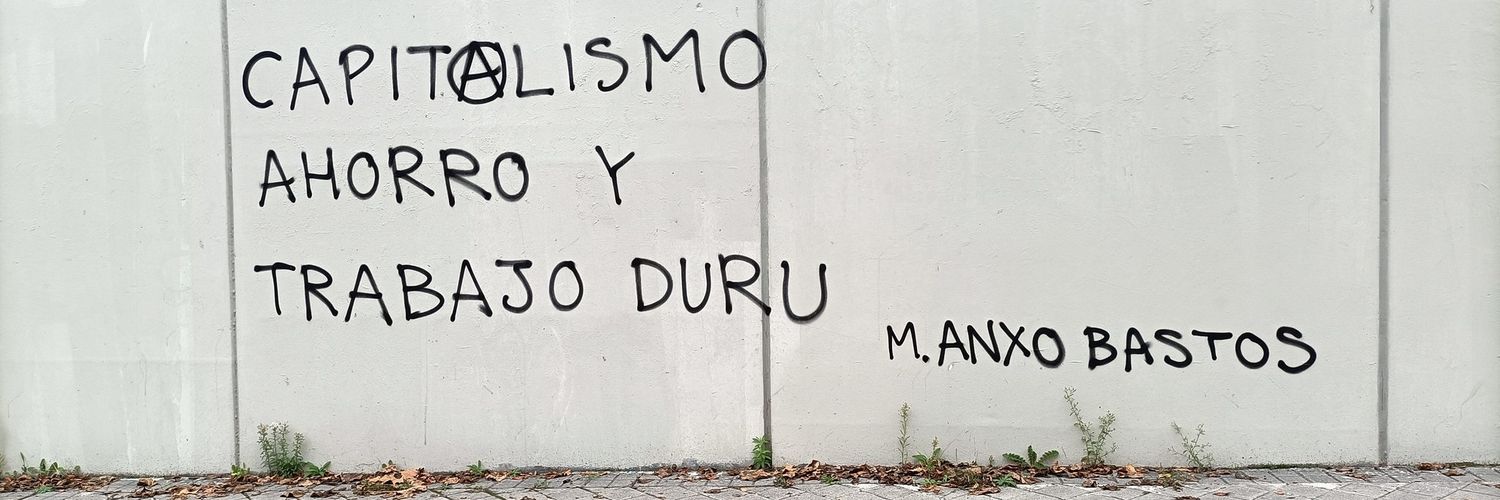 CAPITALISMO
AHORRO Y
TRABAJO DURU
M. ANXO BASTOS